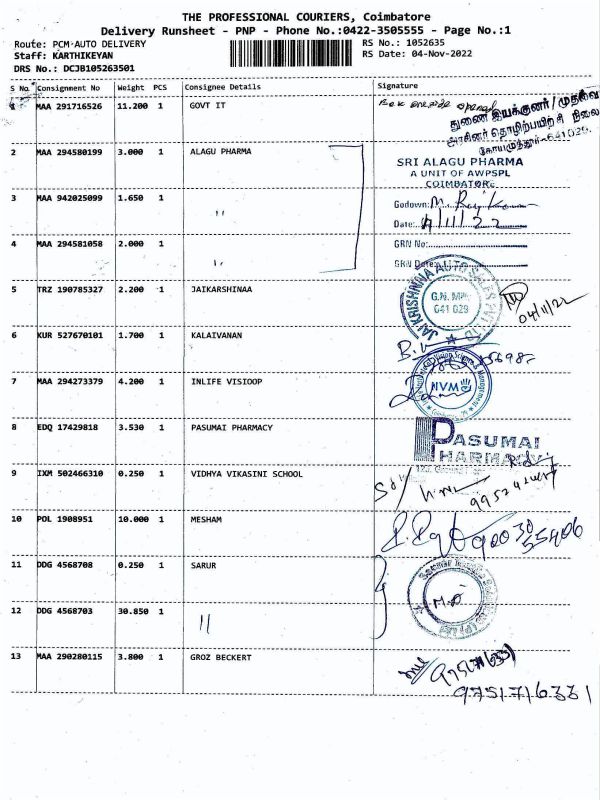 THE PROFESSIONAL COURIERS, Coimbatore
Delivery Runsheet - PNP - Phone No.:0422-3505555 - Page No.:1
Route: PCM-AUTO DELIVERY RS No.: 1052635
Staff: KARTHIKEYAN RS Date: 04-Nov-2022
DRS No.: DCJB105263501
S No. Consignment No Weight PCS Consignee Details Signature
1 MAA 291716526 11.200 1 GOVT IT
துணை இயக்குனர்/முதல்வர்
அரசினர் தொழிற்பயிற்சி நிலை
கோயமுத்தூர்-641 029.
2 MAA 294580199 3.000 1 ALAGU PHARMA
SRI ALAGU PHARMA
A UNIT OF AWPSPL
COIMBATORE
3 MAA 942025099 1.650 1 "
Godown:
Date:
4 MAA 294581058 2.000 1 "
GRN No:
GRN Date:
5 TRZ 190785327 2.200 1 JAIKARSHINAA
JAI KRISHNNA AUTO SALES
G.N. Mills
641 029
04/11/22
6 KUR 527670101 1.700 1 KALAIVANAN
7 MAA 294273379 4.200 1 INLIFE VISIOOP
NVM
8 EDQ 17429818 3.530 1 PASUMAI PHARMACY
PASUMAI
PHARMACY
9 IXM 502466310 0.250 1 VIDHYA VIKASINI SCHOOL
10 POL 1908951 10.000 1 MESHAM
11 DDG 4568708 0.250 1 SARUR
12 DDG 4568703 30.850 1 "
13 MAA 290280115 3.800 1 GROZ BECKERT
9751716331